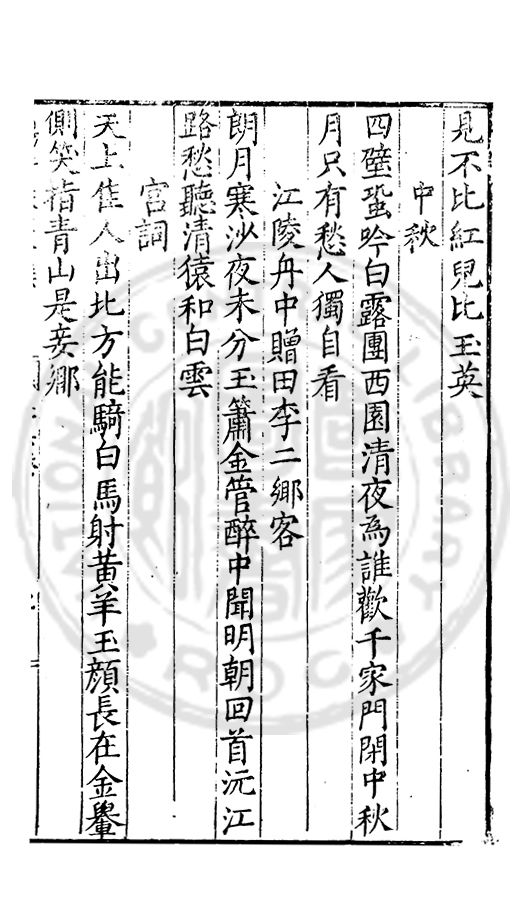 見不比紅兒比玉英
中秋
四壁蛩吟白露團西園清夜爲誰歡千家門閉中秋
月只有愁人獨自看
江陵舟中贈田李二鄉客
朗月寒沙夜未分玉簫金管醉中聞明朝回首沅江
路愁聽清猿和白雲
宮詞
天上隹人出北方能騎白馬射黃羊玉顏長在金轝
側笑指青山是妾鄉